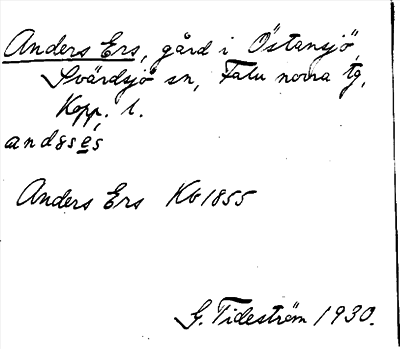 Anders Ers, gård i Östansjö,
Svärdsjö sn, Falu norra tg,
Kopp. l.
andsses
Anders Ers Kb 1855
G. Tideström 1930.